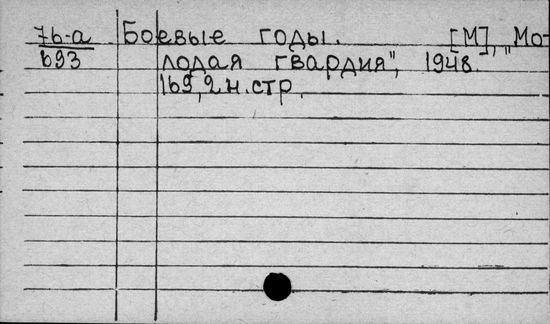 7б-а Боевые годы. [М], „Мо-
б93 лодая гвардия", 1948.
169, 2 н. стр.